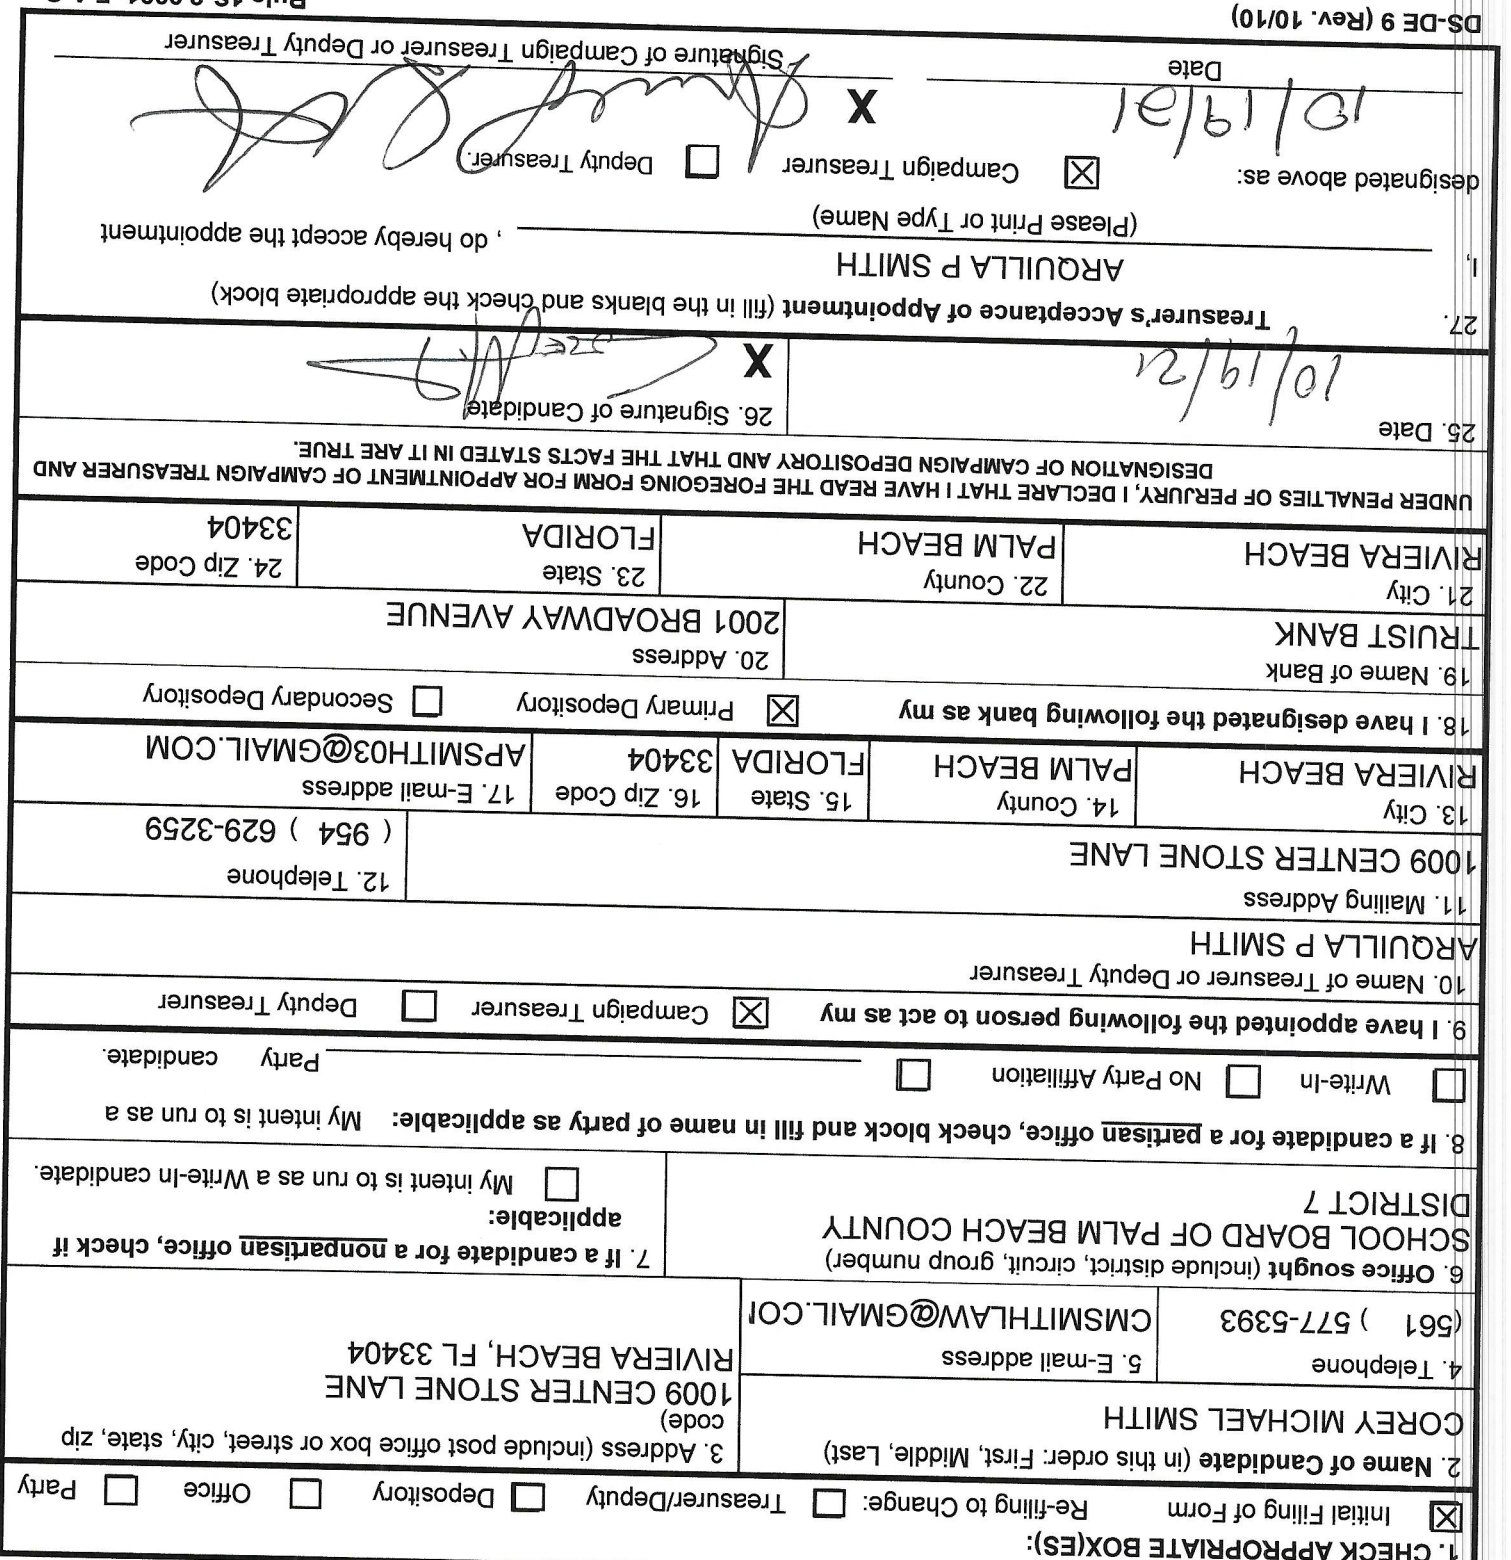 1. CHECK APPROPRIATE BOX(ES):
☒ Initial Filing of Form Re-filing to Change: ☐ Treasurer/Deputy ☐ Depository ☐ Office ☐ Party
2. Name of Candidate (in this order: First, Middle, Last)
COREY MICHAEL SMITH
3. Address (include post office box or street, city, state, zip
code)
1009 CENTER STONE LANE
RIVIERA BEACH, FL 33404
4. Telephone
(561 ) 577-5393
5. E-mail address
CMSMITHLAW@GMAIL.CO
6. Office sought (include district, circuit, group number)
SCHOOL BOARD OF PALM BEACH COUNTY
DISTRICT 7
7. If a candidate for a nonpartisan office, check if
applicable:
☐ My intent is to run as a Write-In candidate.
8. If a candidate for a partisan office, check block and fill in name of party as applicable: My intent is to run as a
☐ Write-In ☐ No Party Affiliation ☐ Party candidate.
9. I have appointed the following person to act as my ☒ Campaign Treasurer ☐ Deputy Treasurer
10. Name of Treasurer or Deputy Treasurer
ARQUILLA P SMITH
11. Mailing Address
1009 CENTER STONE LANE
12. Telephone
( 954 ) 629-3259
13. City
RIVIERA BEACH
14. County
PALM BEACH
15. State
FLORIDA
16. Zip Code
33404
17. E-mail address
APSMITH03@GMAIL.COM
18. I have designated the following bank as my ☒ Primary Depository ☐ Secondary Depository
19. Name of Bank
TRUIST BANK
20. Address
2001 BROADWAY AVENUE
21. City
RIVIERA BEACH
22. County
PALM BEACH
23. State
FLORIDA
24. Zip Code
33404
UNDER PENALTIES OF PERJURY, I DECLARE THAT I HAVE READ THE FOREGOING FORM FOR APPOINTMENT OF CAMPAIGN TREASURER AND
DESIGNATION OF CAMPAIGN DEPOSITORY AND THAT THE FACTS STATED IN IT ARE TRUE.
25. Date
10/19/21
26. Signature of Candidate
X
27. Treasurer's Acceptance of Appointment (fill in the blanks and check the appropriate block)
I, ARQUILLA P SMITH , do hereby accept the appointment
(Please Print or Type Name)
designated above as: ☒ Campaign Treasurer ☐ Deputy Treasurer.
10/19/21 X
Date Signature of Campaign Treasurer or Deputy Treasurer
DS-DE 9 (Rev. 10/10)